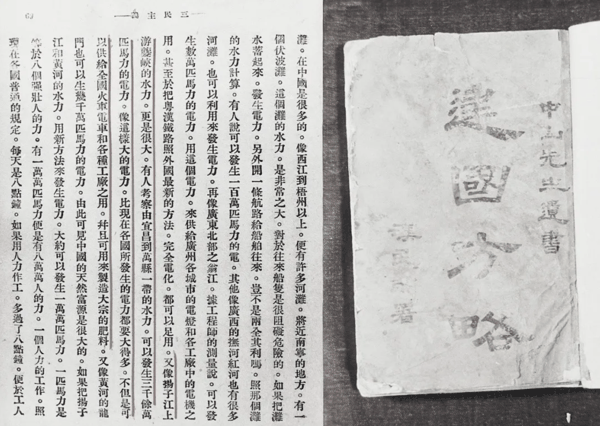 三民主義
灘。在中國是很多的。像西江到梧州以上。便有許多河灘。將近南寧的地方。有一
個伏波灘。這個灘的水力。是非常之大。對於往來船隻是很阻礙危險的。如果把灘
水蓄起來。發生電力。另外開一條航路給船舶往來。豈不是兩全其利嗎。照那個灘
的水力計算。有人說可以發生一百萬匹馬力的電。其他像廣西的撫河紅河也有很多
河灘。也可以利用來發生電力。再像廣東北部之翁江。據工程師的測量說。可以發
生數萬匹馬力的電力。用這個電力。來供給廣州各城市的電燈和各工廠中的電機之
用。甚至於把粵漢鐵路照外國最新的方法。完全電化。都可以足用。又像揚子江上
游夔峽的水力。更是很大。有人考察由宜昌到萬縣一帶的水力。可以發生三千餘萬
匹馬力的電力。像這樣大的電力。比現在各國所發生的電力都要大得多。不但是可
以供給全國火車電車和各種工廠之用。幷且可用來製造大宗的肥料。又像黃河的龍
門也可以生幾千萬匹馬力的電力。由此可見中國的天然富源是很大的。如果把揚子
江和黃河的水力。用新方法來發生電力。大約可以發生一萬萬匹馬力。一匹馬力是
等於八個強壯人的力。有一萬萬匹馬力便是有八萬萬人的力。一個人力的工作。照
現在各國普通的規定。每天是八點鐘。如果用人力作工。多過了八點鐘。便於工人
中山先生遺書
建國方略